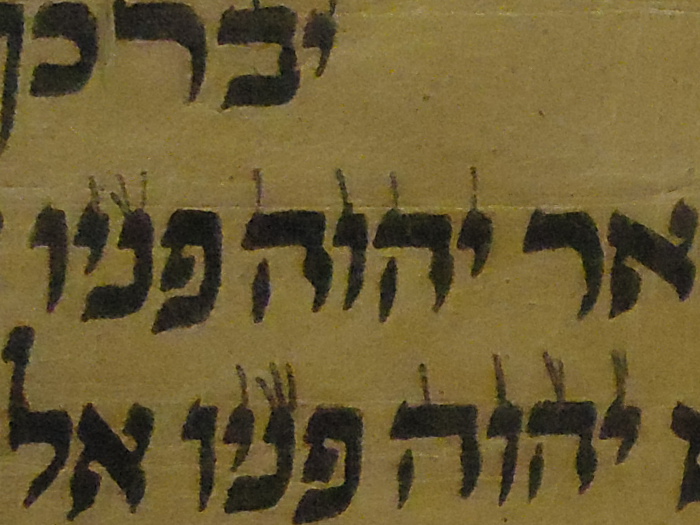 יברכך
אר יהוה פניו
יהוה פניו אל